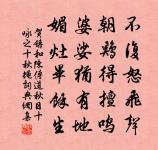 不復怒飛聲
朝鷄得擅鳴
婆娑猶有地
媚灶畢餘生
賀鑄和陳傳道秋日十
詠之十秋蠅詞典網集